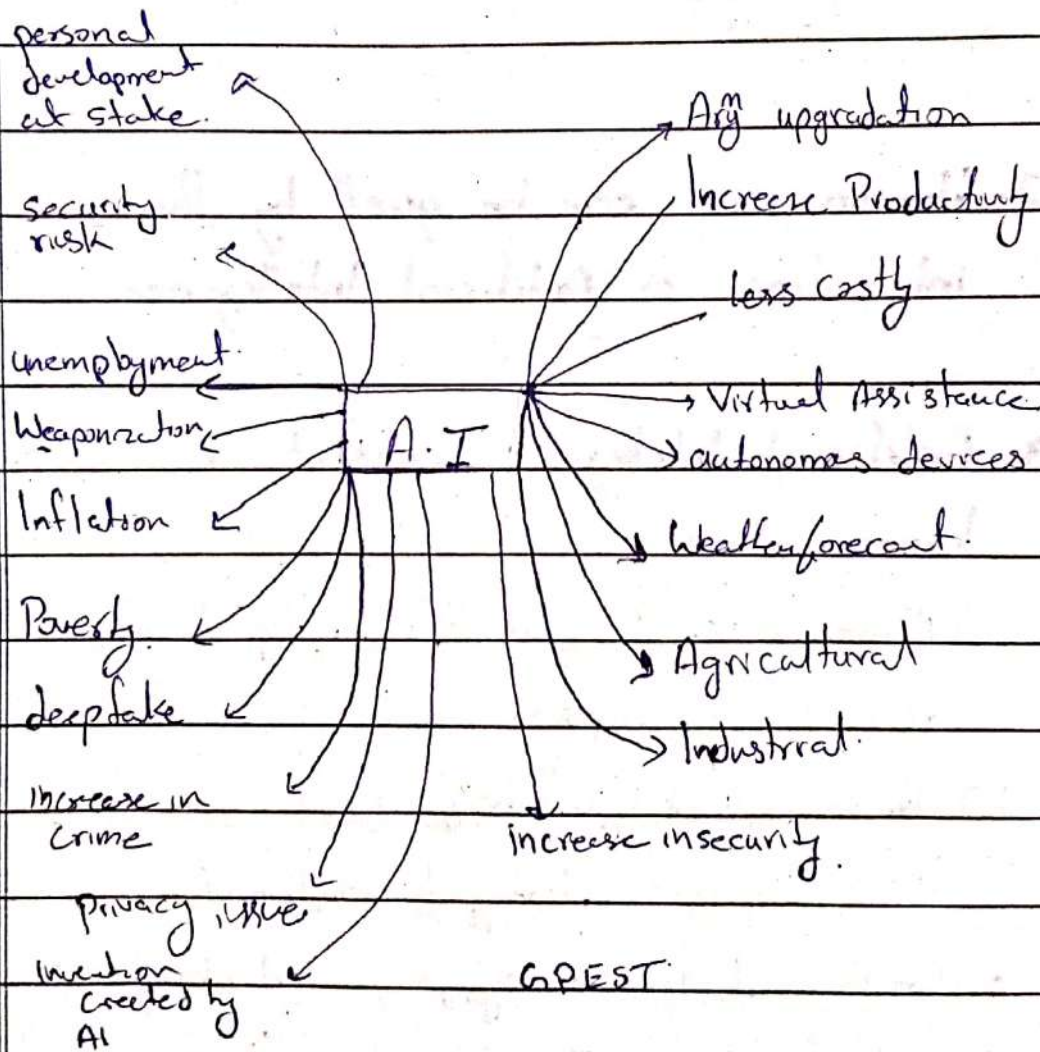 personal
development
at stake.
security
risk
unemployment.
Weaponization
Inflation
Poverty.
deepfake
increase in
crime
privacy issue
Invention
created by
AI
A.I
Army upgradation
Increase Productivity
less costly
Virtual Assistance
autonomas devices
Weather forecast.
Agricultural
Industrial.
increase insecurity.
GPEST